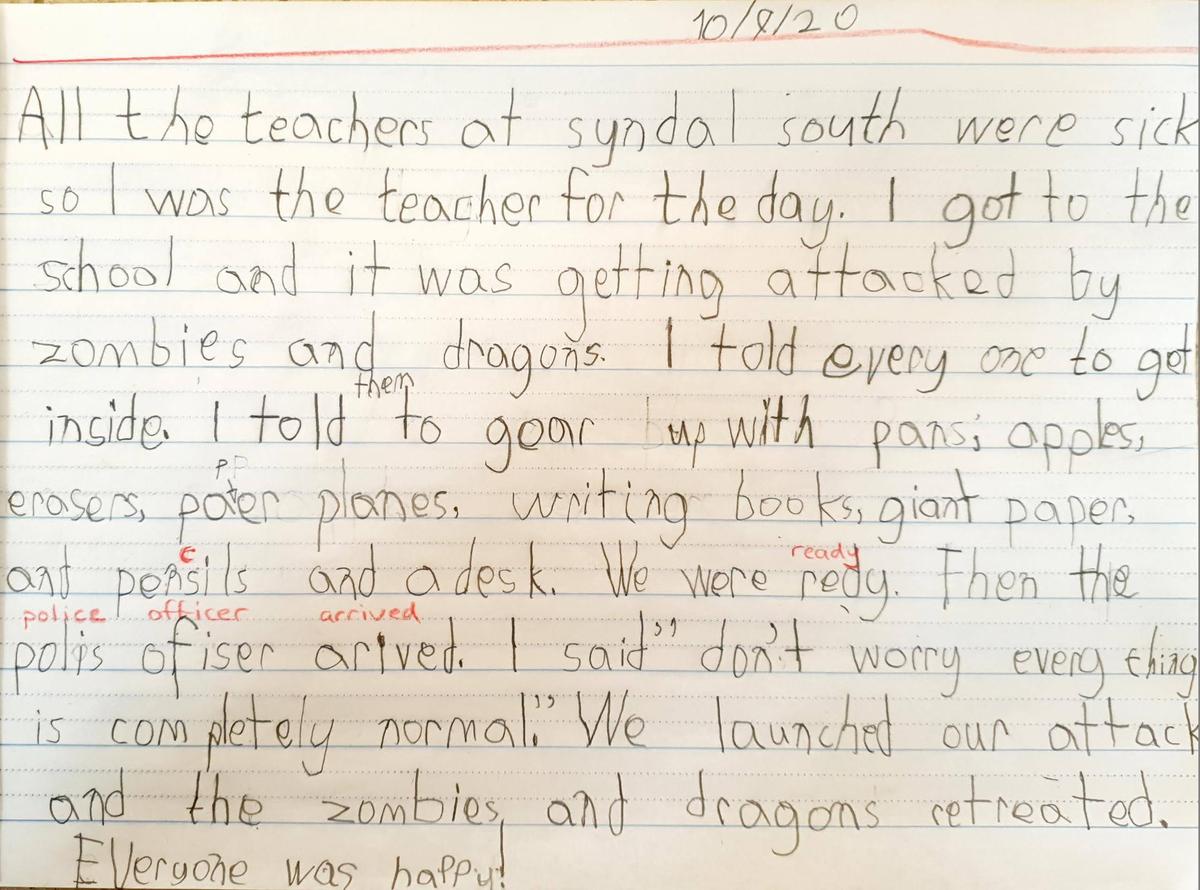 10/8/20
All the teachers at syndal south were sick
so I was the teacher for the day. I got to the
school and it was getting attacked by
zombies and dragons. I told every one to get
them
inside. I told to gear up with pans, apples,
erasers, paper planes, writing books, giant paper,
c ready
and pensils and a desk. We were redy. Then the
police officer arrived
polis ofiser arived. I said" don't worry every thing
is completely normal." We launched our attack
and the zombies and dragons retreated.
Everyone was happy!